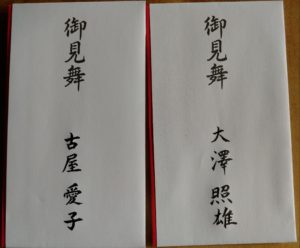 御見舞
大澤照雄
御見舞
古屋愛子